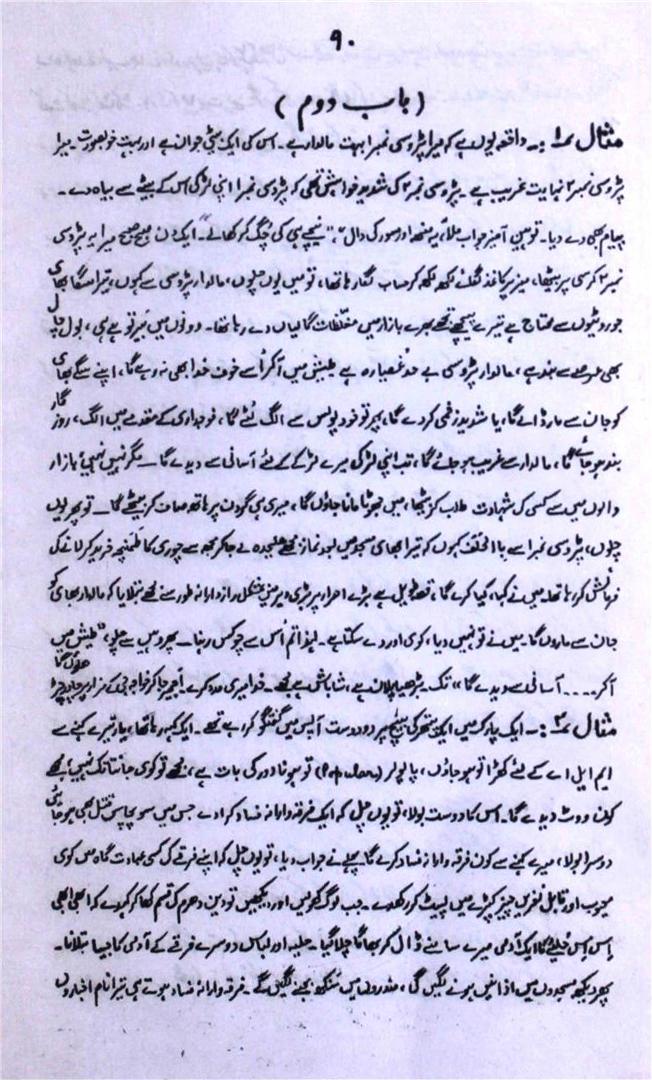 ۹۰
(باب دوم)
مثال ۱ :۔ واقعہ یوں ہے کہ میرا پڑوسی نمبر۱ بہت مالدار ہے۔ اس کی ایک بیٹی جوان ہے اور بہت خوبصورت۔ میرا
پڑوسی نمبر۲ نہایت غریب ہے۔ پڑوسی نمبر۲ کی شدید خواہش تھی کہ پڑوسی نمبر۱ اپنی لڑکی اس کے بیٹے سے بیاہ دے۔
پیام بھی دے دیا۔ توہین آمیز جواب ملا، یہ منھ اور مسور کی دال"، نیچے ہی کی چگ کر کھالے"۔ ایک دن صبح صبح میرا یہ پڑوسی
نمبر۲ کرسی پر بیٹھا، میز پر کاغذ لکھ لکھ کر حساب لگا رہا تھا، تو میں یوں چلوں، مالدار پڑوسی سے کہوں، تیرا سگا بھائی
جو روٹیوں سے محتاج ہے تیرے پیچھے تجھے بھرے بازار میں مغلظات گالیاں دے رہا تھا۔ دونوں میں بَیر تو ہے ہی، بول چال
بھی عرصے سے بند ہے، مالدار پڑوسی بے حد غصیارہ ہے طیش میں آکر اُسے خوف خدا بھی نہ رہے گا، اپنے سگے بھائی
کو جان سے مار ڈالے گا، یا شدید زخمی کر دے گا، پھر تو خود پولس سے الگ لُٹے گا، فوجداری کے مقدمے میں الگ، روزگار
بند ہو جائے گا، مالدار سے غریب ہو جائے گا، تب اپنی لڑکی میرے لڑکے کے لئے آسانی سے دیدے گا۔ مگر نہیں نہیں! بازار
والوں میں سے کسی کی شہادت طلب کر بیٹھا، میں جھوٹا مانا جاؤں گا، میری ہی گردن پر ہاتھ صاف کر بیٹھے گا۔ تو پھر یوں
چلوں، پڑوسی نمبر۱ سے باالحلف کہوں کہ تیرا بھائی مسجد میں بعد نماز مجھے علیحدہ لے جا کر مجھ سے چوری کا طمنچہ خرید کر لانے کی
فرمائش کر رہا تھا۔ میں نے کہا، کیا کرے گا، قصہ طویل ہے بڑے اصرار پر بڑی دیر میں بمشکل رازدارانہ طور سے مجھے بتلایا کہ مالدار بھائی کو
جان سے ماروں گا۔ میں نے تو نہیں دیا، کوئی اور دے سکتا ہے۔ لہٰذا تم اُس سے چوکس رہنا۔ پھر وہیں سے چلو، "طیش میں
آکر۔۔۔۔ آسانی سے دیدے گا" تک۔ بڑھیا پلان ہے، شاباش ہے مجھے۔ خدا میری مدد کرے اجمیر جاکر خواجہ جی کے مزار پر چادر چڑھاؤں گا
مثال ۲ :۔ ایک پارک میں ایک پتھر کی بینچ پر دو دوست آپس میں گفتگو کر رہے تھے۔ ایک کہہ رہا تھا، یار تیرے کہنے سے
ایم ایل اے کے لئے کھڑا تو ہو جاؤں، پاپولر (Popular) تو ہونا دور کی بات ہے، مجھے تو کوئی جانتا تک نہیں ہے مجھے
کون ووٹ دیدے گا۔ اس کا دوست بولا، تو یوں چل کہ ایک فرقہ وارانہ فساد کرا دے جس میں سو پچاس قتل بھی ہو جائیں
دوسرا بولا، میرے کہنے سے کون فرقہ وارانہ فساد کرے گا۔ پہلے نے جواب دیا، تو یوں چل کہ اپنے فرقے کی کسی عبادت گاہ میں کوئی
معیوب اور قابل نفریں چیز کپڑے میں لپیٹ کر رکھدے۔ جب لوگ کھولیں اور دیکھیں تو دین دھرم کی قسم کھا کر کہدے کہ ابھی ابھی
اِس اِس حُلیے کا ایک آدمی میرے سامنے ڈال کر بھاگا چلا گیا۔ حلیہ اور لباس دوسرے فرقے کے آدمی کا جیسا بتلانا۔
پھر دیکھ مسجدوں میں اذانیں ہونے لگیں گی، مندروں میں سنکھ بجنے لگیں گے۔ فرقہ وارانہ فساد ہوتے ہی تیرا نام اخباروں